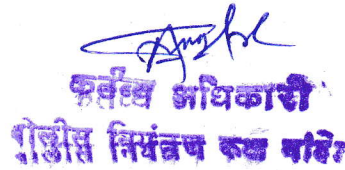 कर्तव्य अधिकारी
पोलीस नियंत्रण कक्ष